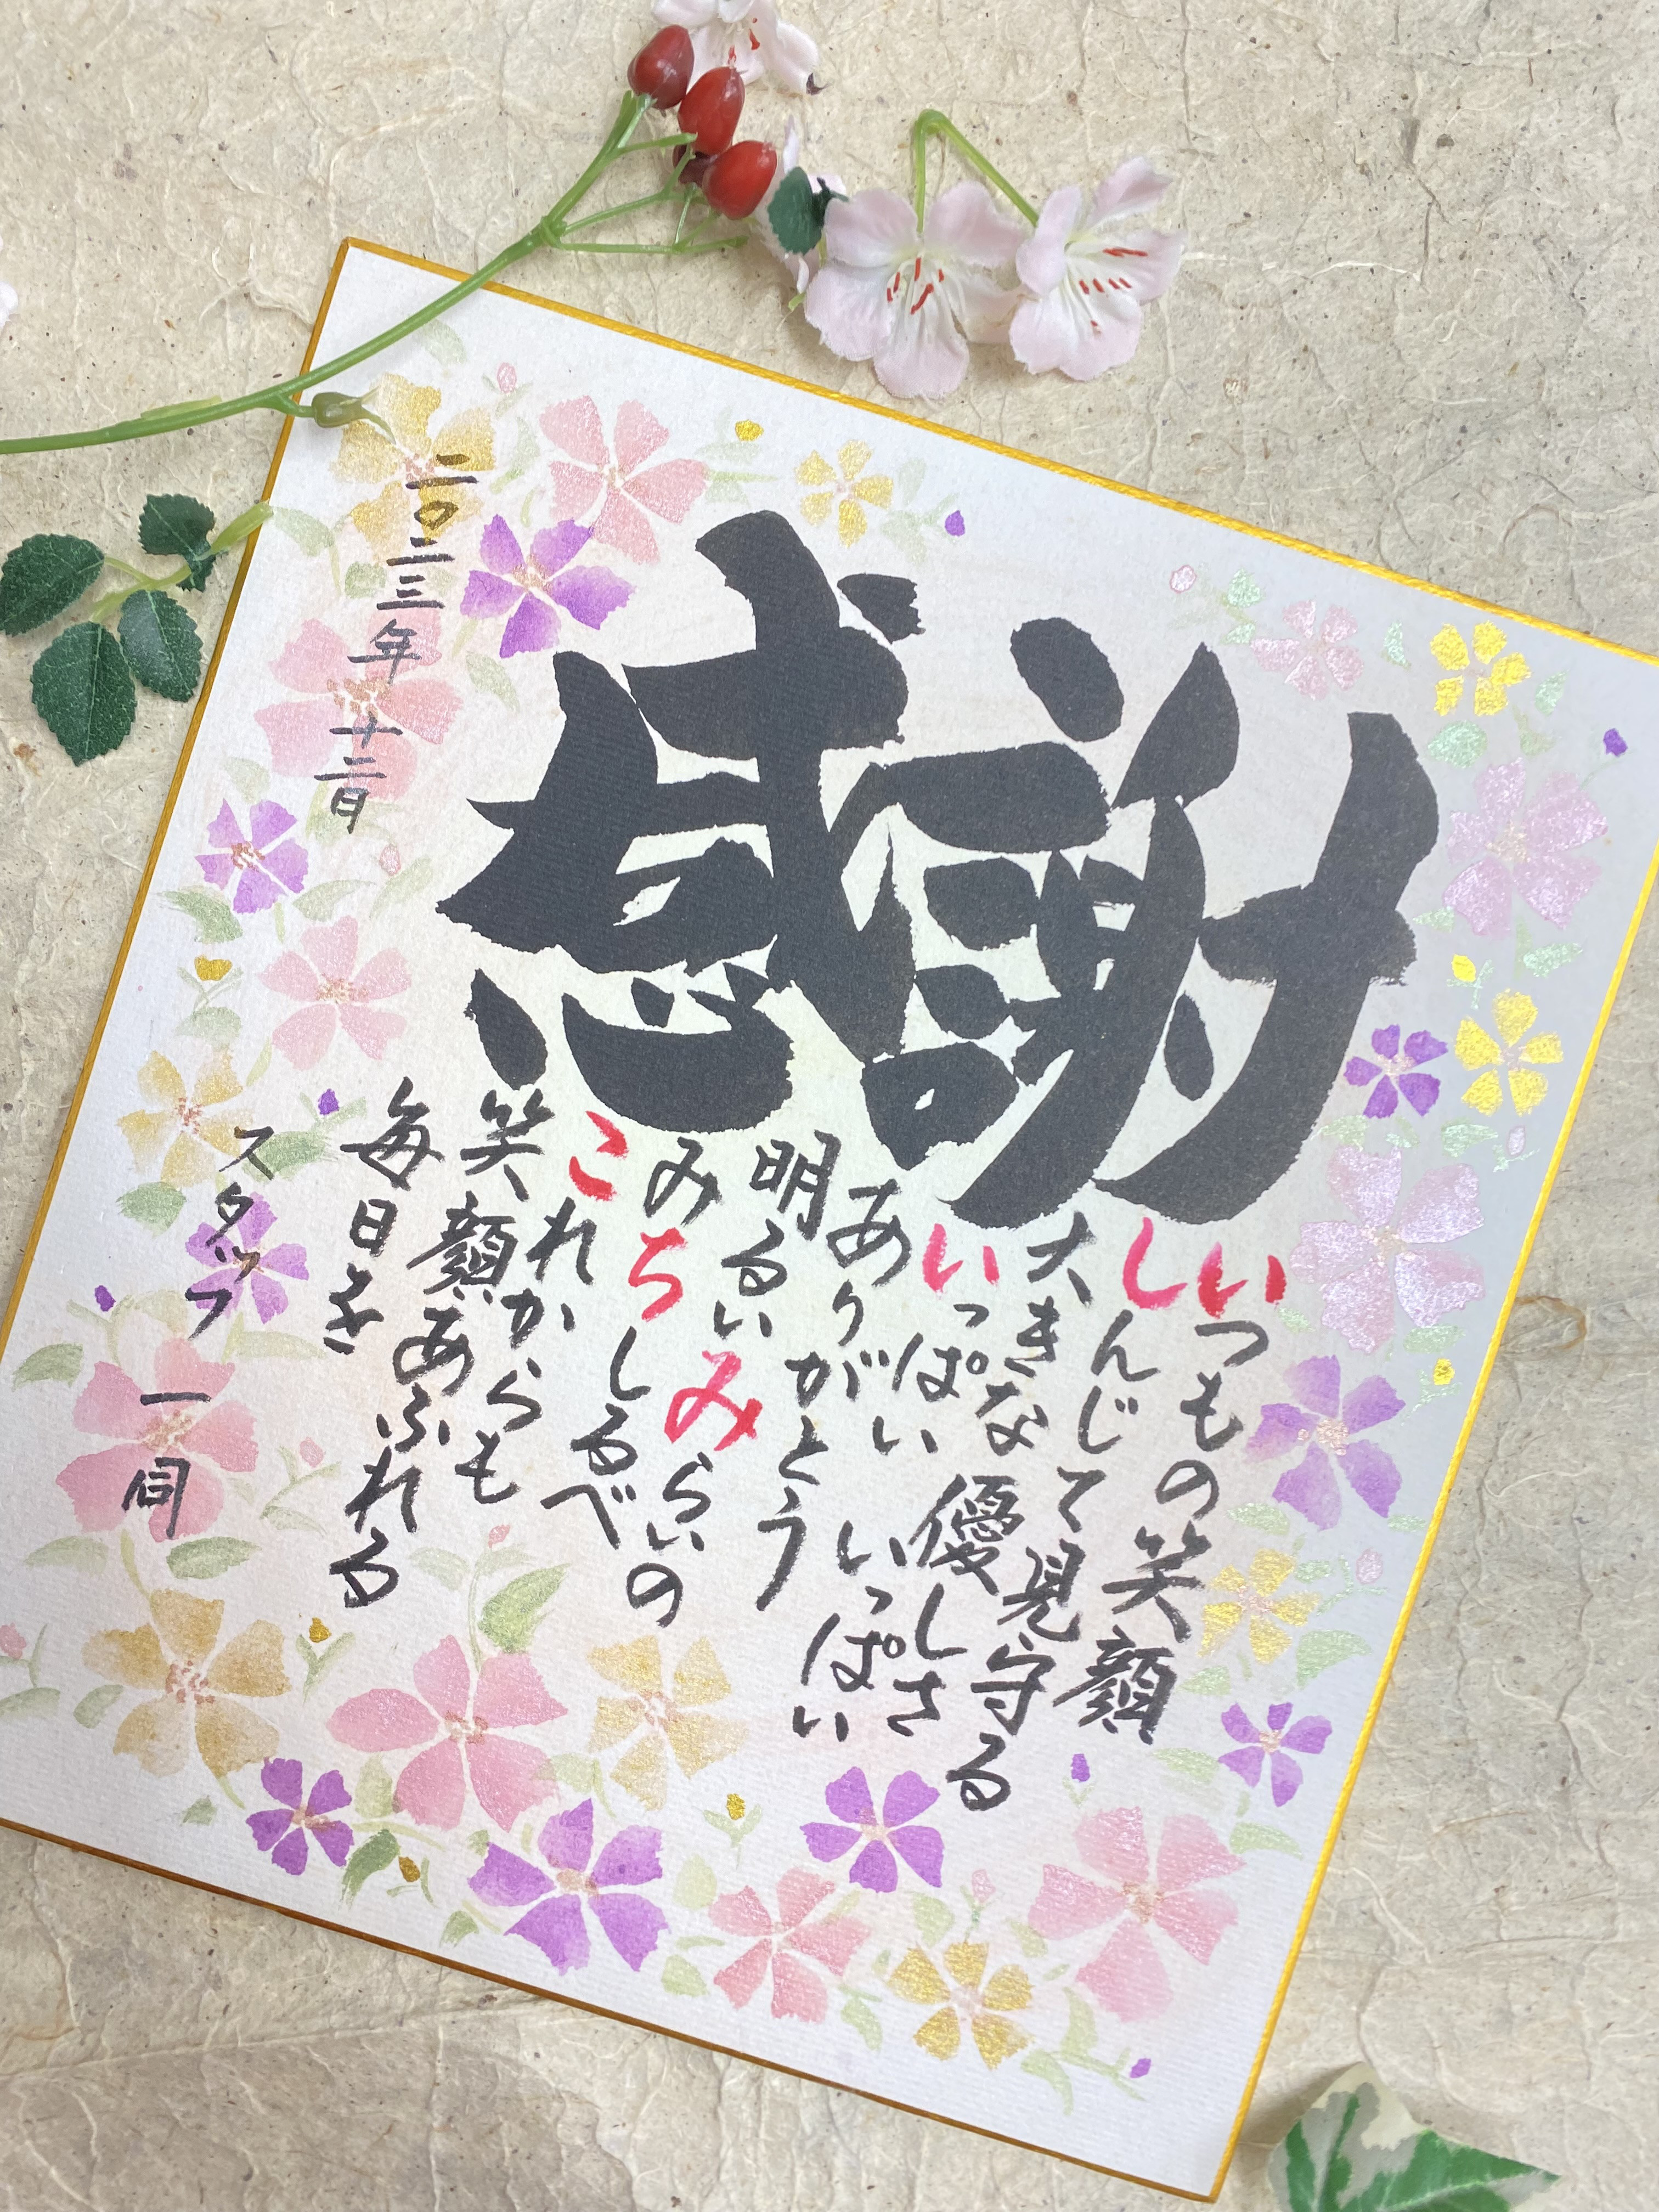 感謝
いつもの笑顔
しんじて見守る
大きな 優しさ
いっぱい いっぱい
ありがとう
明るいみらいの
みちしるべ
これからも
笑顔あふれる
毎日を
二〇二三年 十二月
スタッフ 一同